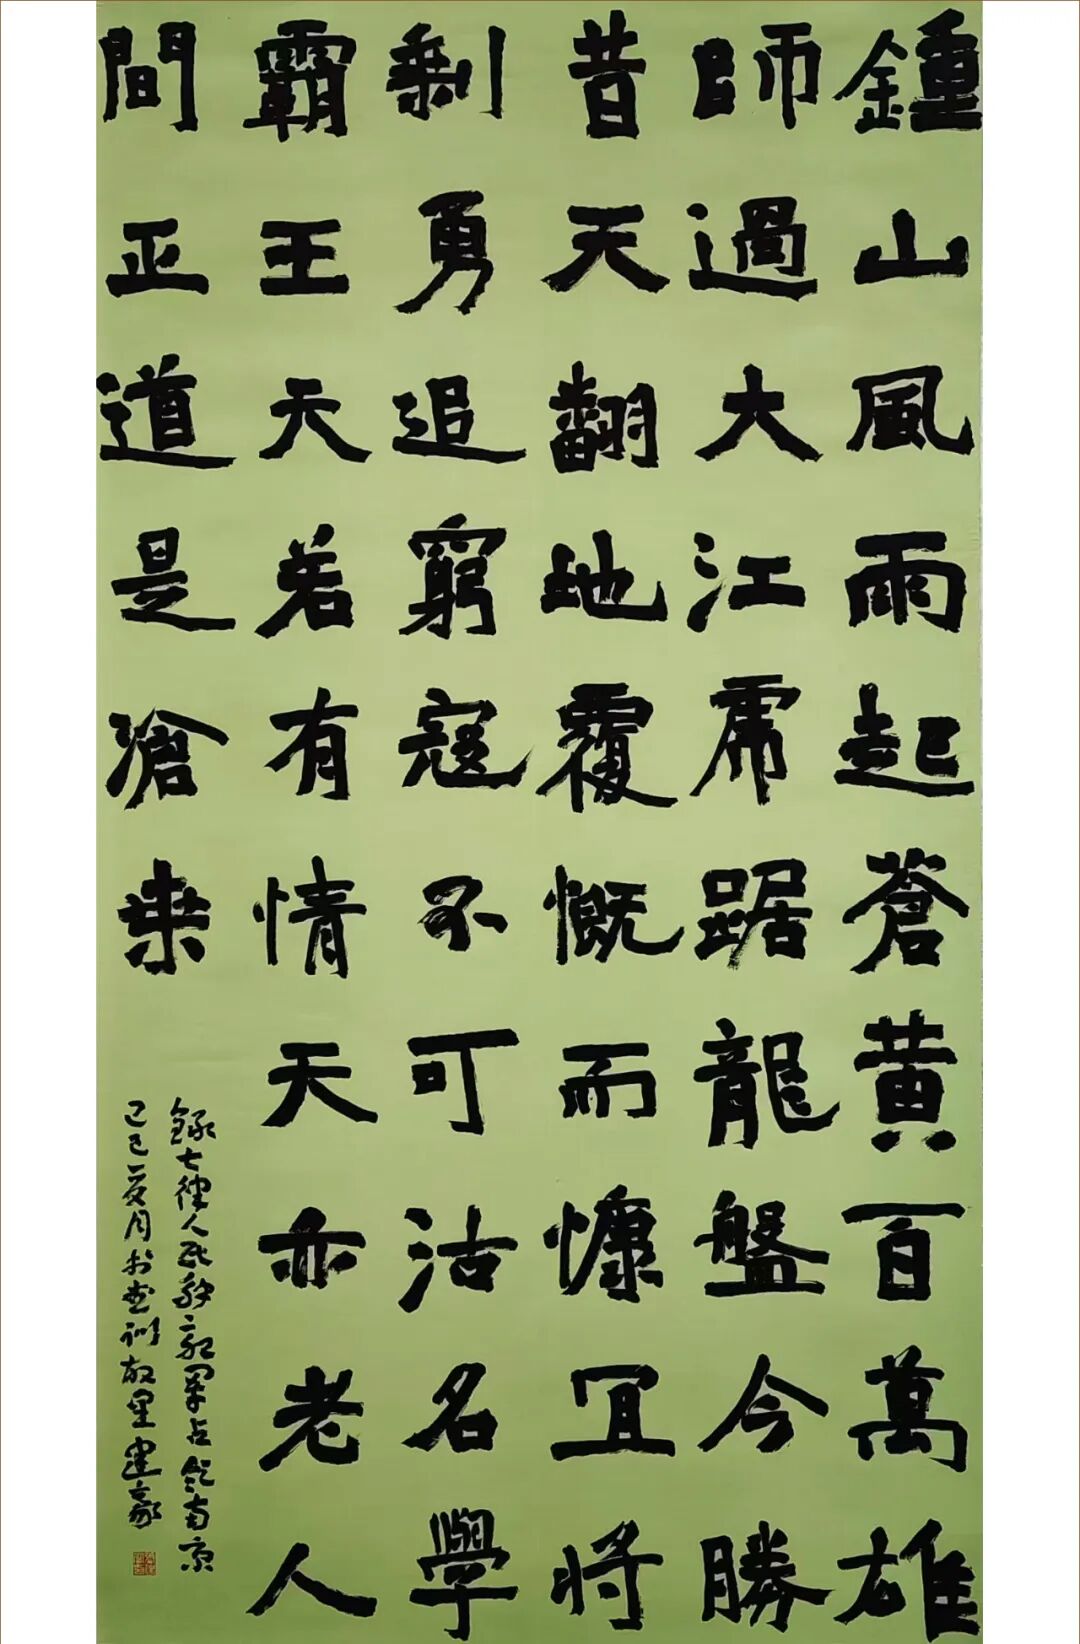 鍾山風雨起蒼黃百萬雄
師過大江虎踞龍盤今勝
昔天翻地覆慨而慷宜將
剩勇追窮寇不可沽名學
霸王天若有情天亦老人
間正道是滄桑
錄七律人民解放軍占領南京
巳夏月於訓故里建豪